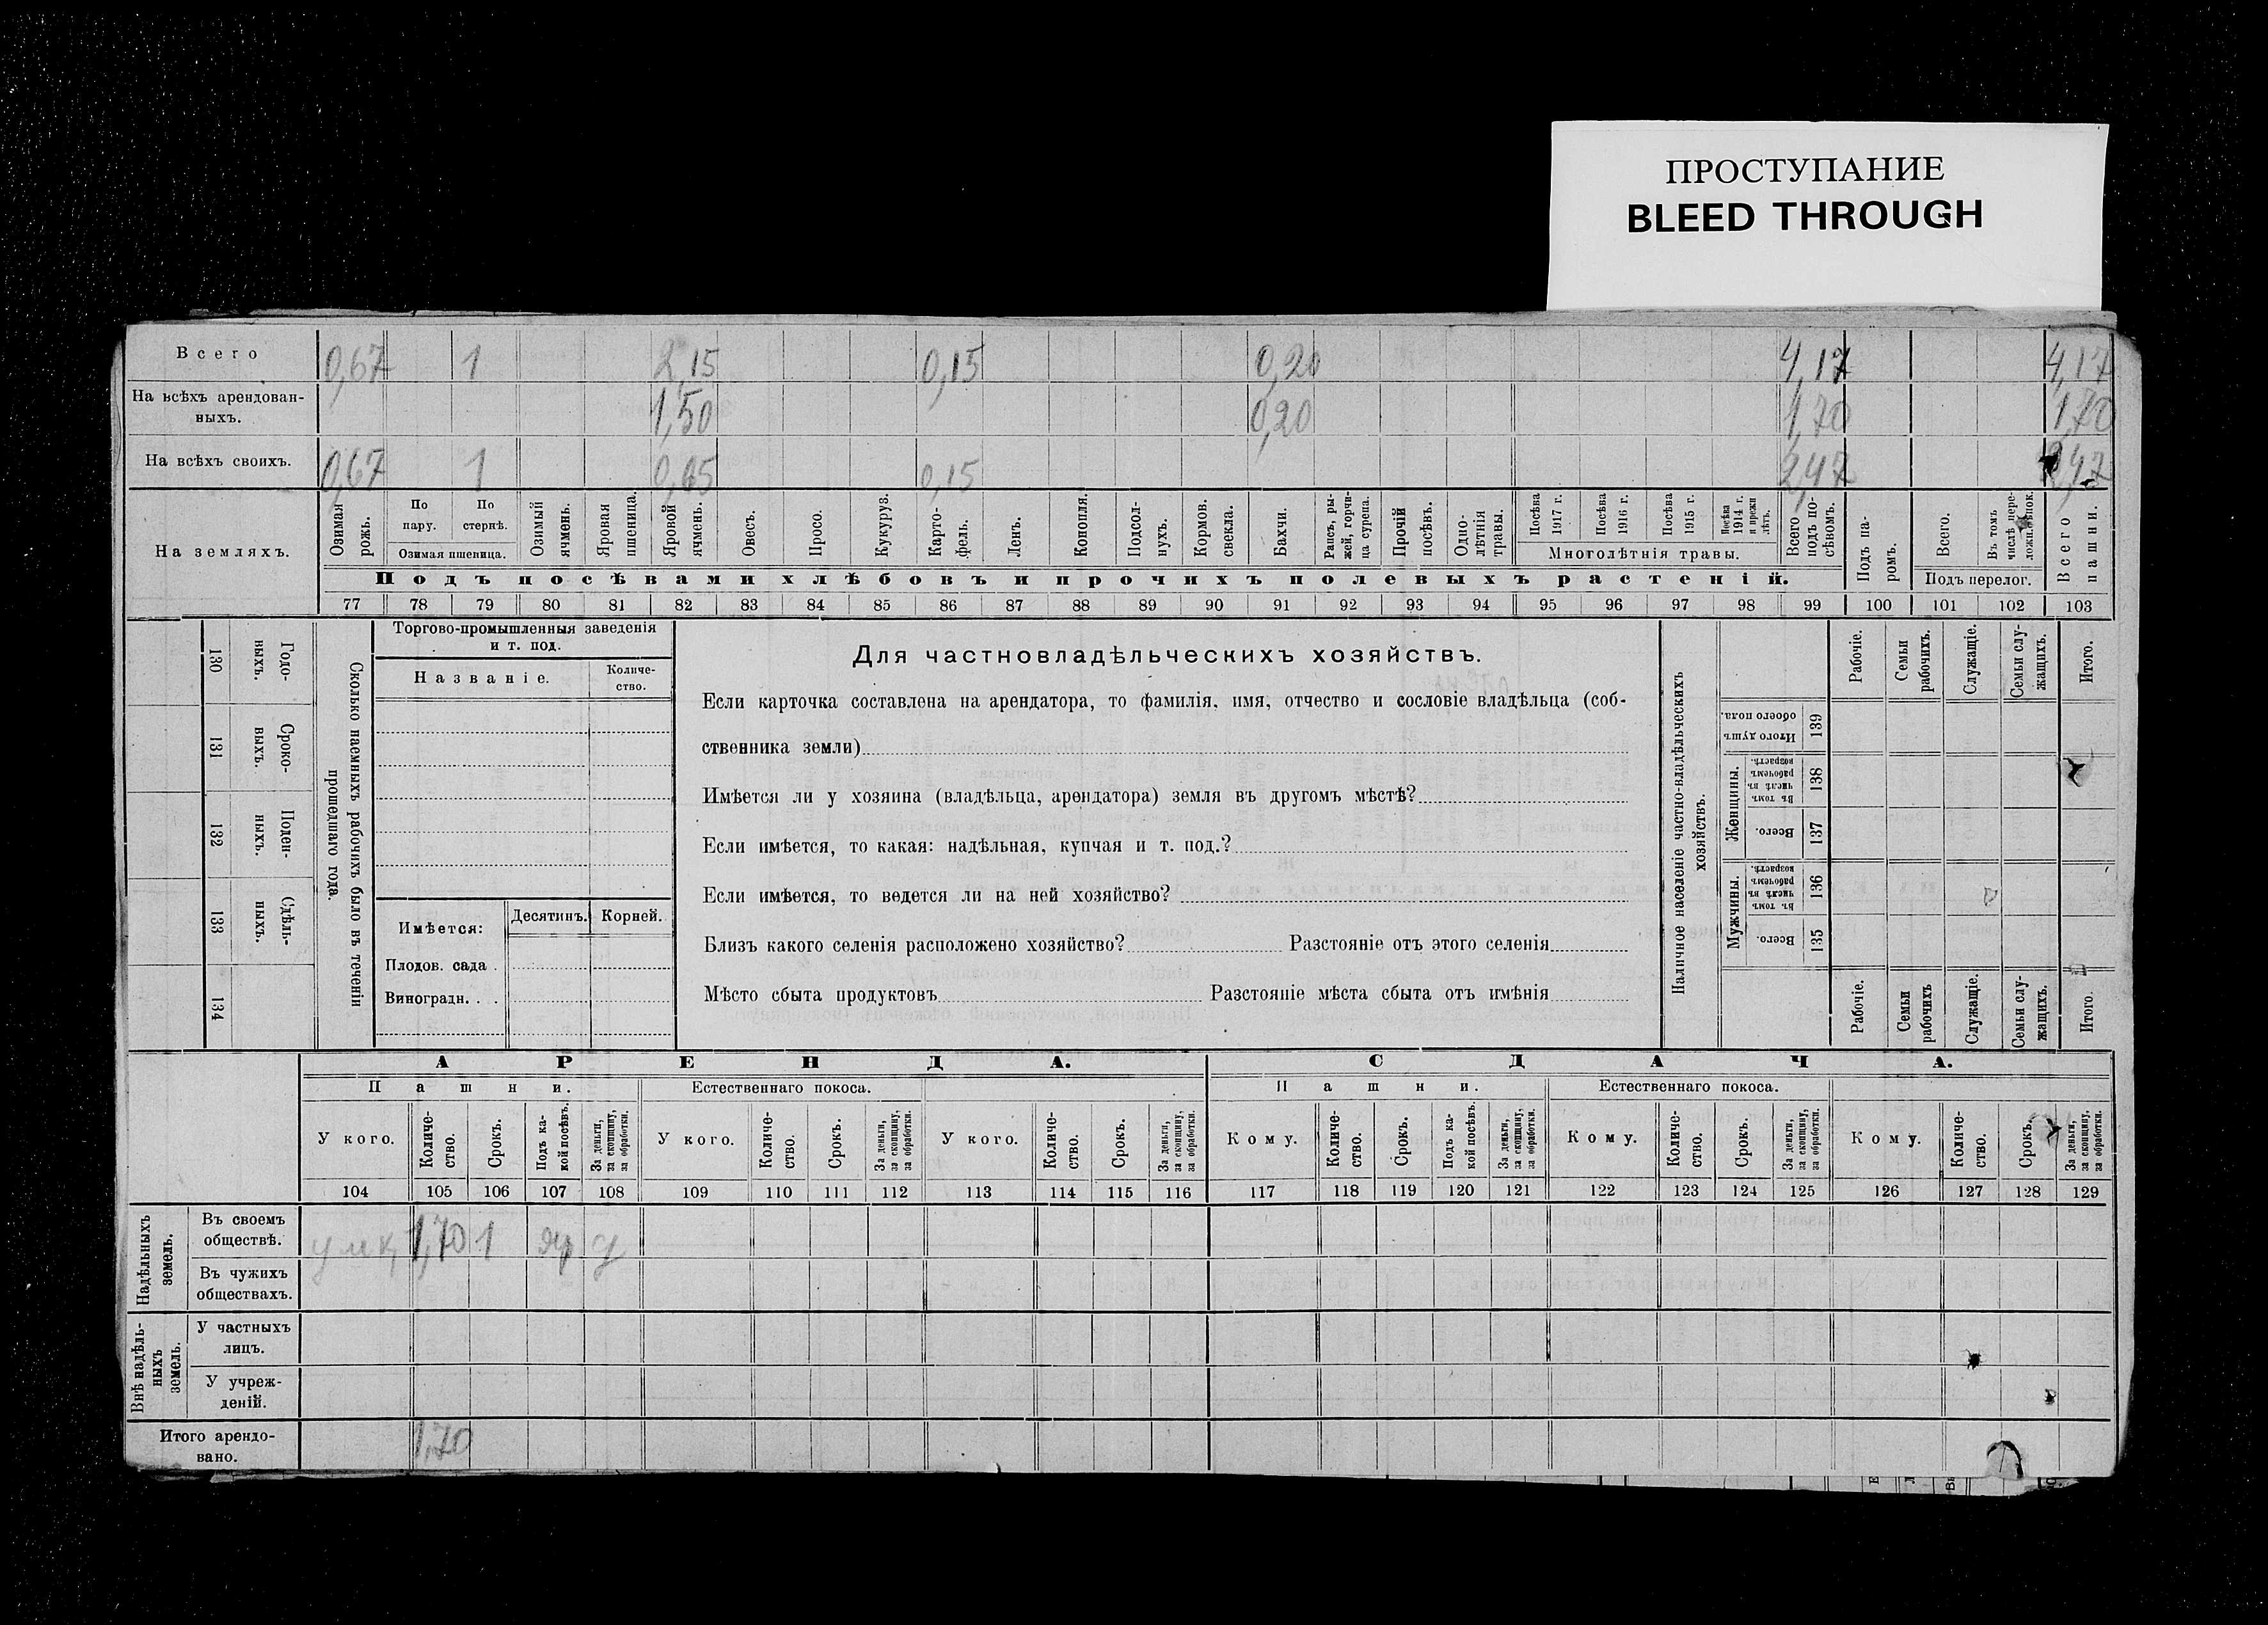 ПРОСТУПАНИЕ
BLEED THROUGH
Всего 0,67 1 2,15 0,15 0,20 4,17 4,17
На всѣхъ арендован-
ныхъ. 1,50 0,20 1,70 1,70
На всѣхъ своихъ. 0,67 1 0,65 0,15 2,47 2,47
На земляхъ.
Озимая рожь.
По пару.
По стернѣ.
Озимая пшеница.
Озимый ячмень.
Яровая пшеница.
Яровой ячмень.
Овесъ.
Просо.
Кукуруз.
Карто-
фель.
Ленъ.
Конопля.
Подсол-
нухъ.
Кормов.
свекла.
Бахчи.
Рапсъ, ры-
жей, горчи-
ца сурепа.
Прочій посѣвъ.
Одно-
лѣтнія травы.
Посѣва 1917 г.
Посѣва 1916 г.
Посѣва 1915 г.
Посѣва 1914 г. и прежн лѣтъ.
Многолѣтнія травы.
Всего подъ по-
сѣвомъ.
Подъ па-
ромъ.
Всего.
Въ томъ числѣ пере-
Подъ перелог.
Всего пашни.
Подъ посѣвами хлѣбовъ и прочихъ полевыхъ растеній.
77 78 79 80 81 82 83 84 85 86 87 88 89 90 91 92 93 94 95 96 97 98 99 100 101 102 103
130 Годо-
ныхъ.
131 Сроко-
ныхъ.
132 Поден-
ныхъ.
133 Сдѣль-
ныхъ.
134
Сколько наемныхъ рабочихъ было въ теченіи
прошедшаго года.
Торгово-промышленныя заведенія
и т. под.
Названіе. Количе-
ство.
Имѣется: Десятинъ. Корней.
Плодов. сада .
Виноградн. . .
Для частновладѣльческихъ хозяйствъ.
Если карточка составлена на арендатора, то фамилія, имя, отчество и сословіе владѣльца (соб-
ственника земли)
Имѣется ли у хозяина (владѣльца, арендатора) земля въ другомъ мѣстѣ?
Если имѣется, то какая: надѣльная, купчая и т. под.?
Если имѣется, то ведется ли на ней хозяйство?
Близъ какого селенія расположено хозяйство? Разстояніе отъ этого селенія
Мѣсто сбыта продуктовъ Разстояніе мѣста сбыта отъ имѣнія
Наличное населеніе частно-владѣльческихъ
хозяйствъ.
Рабочіе.
Семьи рабочихъ.
Служащіе.
Семьи слу-
жащихъ.
Итого.
Итого душъ обоего пола. 139
Женщины.
Въ томъ числѣ въ рабочемъ возрастѣ. 138
Всего. 137
Мужчины.
Въ томъ числѣ въ рабочемъ возрастѣ. 136
Всего. 135
Рабочіе.
Семьи рабочихъ
Служащіе.
Семьи слу-
жащихъ.
Итого.
АРЕНДА. СДАЧА.
Пашни. Естественнаго покоса. Пашни. Естественнаго покоса.
У кого. Количе-
ство. Срокъ. Подъ ка-
кой посѣвъ. За деньги, за скопщину, за обработки. У кого. Количе-
ство. Срокъ. За деньги, за скопщину, за обработки. У кого. Количе-
ство. Срокъ. За деньги, за скопщину, за обработки. Кому. Количе-
ство. Срокъ. Подъ ка-
кой посѣвъ. За деньги, за скопщину, за обработки. Кому. Количе-
ство. Срокъ. За деньги, за скопщину, за обработки. Кому. Количе-
ство. Срокъ. За деньги, за скопщину, за обработки.
104 105 106 107 108 109 110 111 112 113 114 115 116 117 118 119 120 121 122 123 124 125 126 127 128 129
Надѣльныхъ
земель.
Въ своемъ
обществѣ. 1,70 1
Въ чужихъ
обществахъ.
Внѣ надѣль-
ныхъ
земель.
У частныхъ
лицъ.
У учреж-
деній.
Итого арендо-
вано. 1,70